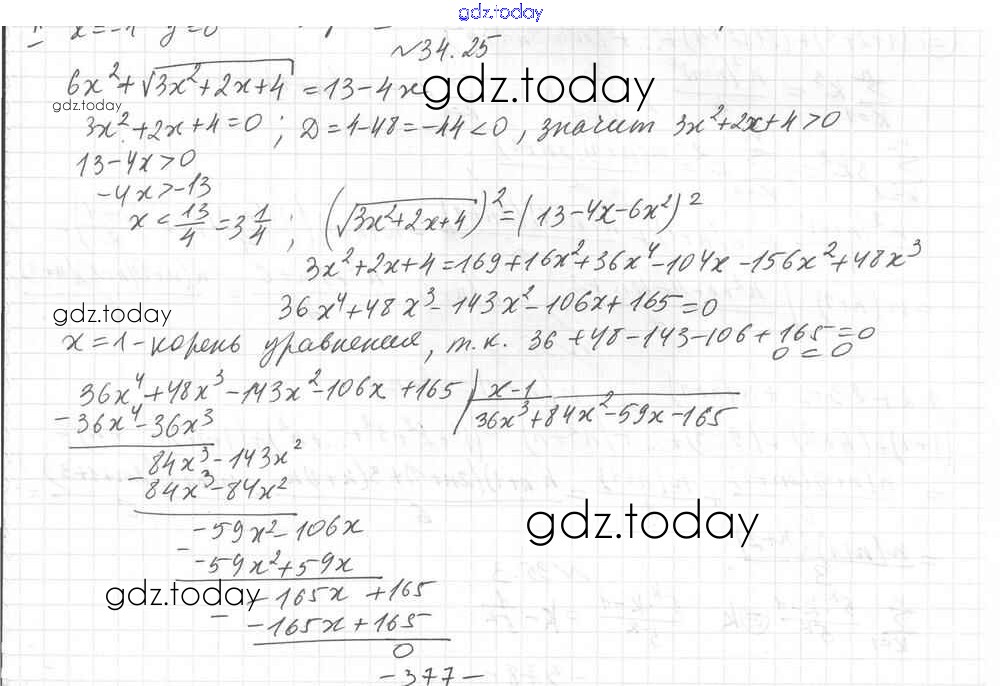 gdz.today
x=-1 y=0
№34.25
6x²+√3x²+2x+4 = 13-4x
gdz.today
gdz.today
3x²+2x+4=0; D=4-48=-44<0, значит 3x²+2x+4>0
13-4x>0
-4x>-13
x<13/4=3 1/4; (√3x²+2x+4)²=(13-4x-6x²)²
3x²+2x+4=169+16x²+36x⁴-104x-156x²+48x³
gdz.today
36x⁴+48x³-143x²-106x+165=0
x=1-корень уравнения, т.к. 36+48-143-106+165=0
0=0
36x⁴+48x³-143x²-106x+165 | x-1
-36x⁴-36x³ 36x³+84x²-59x-165
84x³-143x²
-84x³-84x²
gdz.today
-59x²-106x
- -59x²+59x
gdz.today
-165x+165
- -165x+165
0
-377-